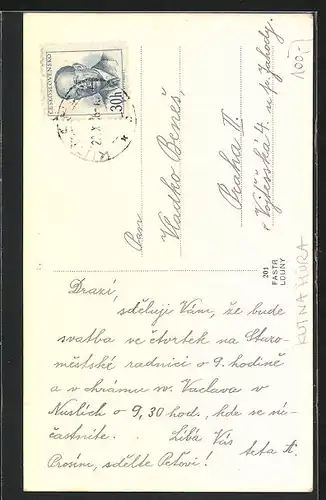 Drazí,
sděluji Vám, že bude
svatba ve čtvrtek na Staro-
městské radnici o 9. hodině
a v chrámu sv. Václava v
Nuslích o 9,30 hod., kde se zú-
častníte. Líbá Vás
teta A.
Prosím, sdělte Peťovi!
Pan
Vladko Beneš,
Praha II.
Vojtěšská 4. u p. Jahody.
ČESKOSLOVENSKO
30h
201
FASTR
LOUNY
100,-
KUTNÁ HORA